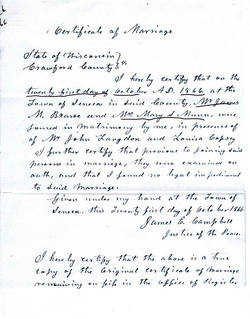 Certificate of Marriage
State of Wisconsin }
Crawford County } ss
I hereby certify that on the
twenty first day of October A.D. 1866 at the
Town of Seneca in said County, Mr James
M. Bearse and Mrs Mary S. Munn were
joined in Matrimony by me, in presence of
of Mr John Langdon and Louisa Copsey
I further certify that previous to joining said
persons in marriage, they were examined on
oath, and that I found no legal impediment
to said Marriage.
Given under my hand at the Town of
Seneca this Twenty first day of October 1866
James E. Campbell
Justice of the Peace.
I hereby certify that the above is a true
copy of the Original certificate of Marriage
remaining on file in the office of Register